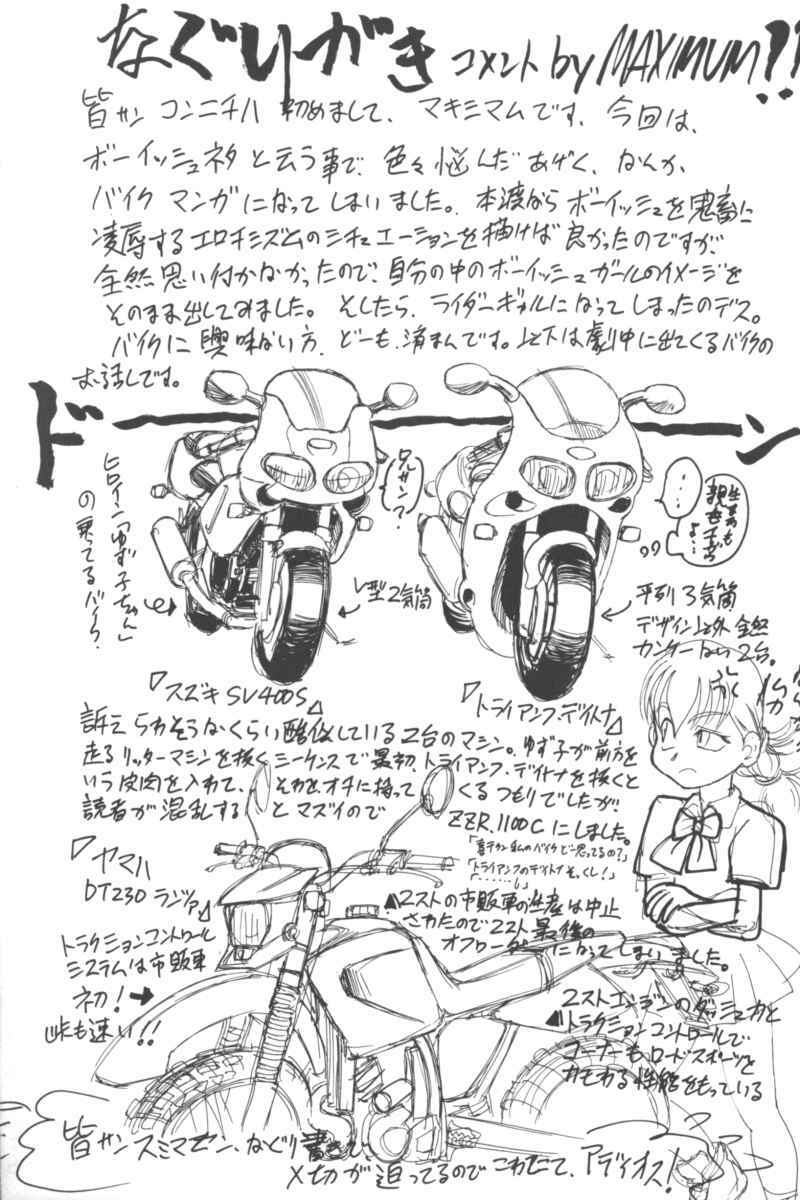 なぐりがき コメント by MAXIMUM!!
皆サン コンニチハ 初めまして、マキシマムです、今回は、
ボーイッシュネタと云う事で、色々悩んだあげく、なんか、
バイクマンガになってしまいました。本渡ならボーイッシュを鬼畜に
凌辱するエロチシズムのシチュエーションを描けば良かったのですが、
全然思い付かなかったので、自分の中のボーイッシュガールのイメージを
そのまま出してみました。そしたら、ライダーギャルになってしまったのデス。
バイクに興味ない方、どーも、済まんです。以下は劇中に出てくるバイクの
お話しです。
ドーーン
ヒロイン「ゆず子ちゃん」
の乗ってるバイク。
兄サン?
・・・
V型2気筒
平列3気筒
デザイン以外全然
カンケーない2台。
スズキ SV400S
トライアンフ・デイトナ
訴えられそうなくらい酷似している2台のマシン。ゆず子が前方を
走るリッターマシンを抜くシーケンスで最初、トライアンフ・デイトナを抜くと
いう皮肉を入れて、それをオチに持って
くるつもりでしたが、
読者が混乱するとマズイので
ZZR1100Cにしました。
「トライアンフのデイトナそっくし!」
「・・・・・・」
ヤマハ
DT230 ランツァ
トラクションコントロール
システムは市販車
初!
峠も速い!!
2ストの市販車の生産は中止
されたので2スト最後の
オフローダーになってしまいました。
2ストエンジンのダッシュ力と
トラクションコントロールで
コーナーもロードスポーツを
カモれる性能をもっている
皆サンスミマセン、なぐり書きで、
〆切が迫ってるのでこれにて、アディオス!